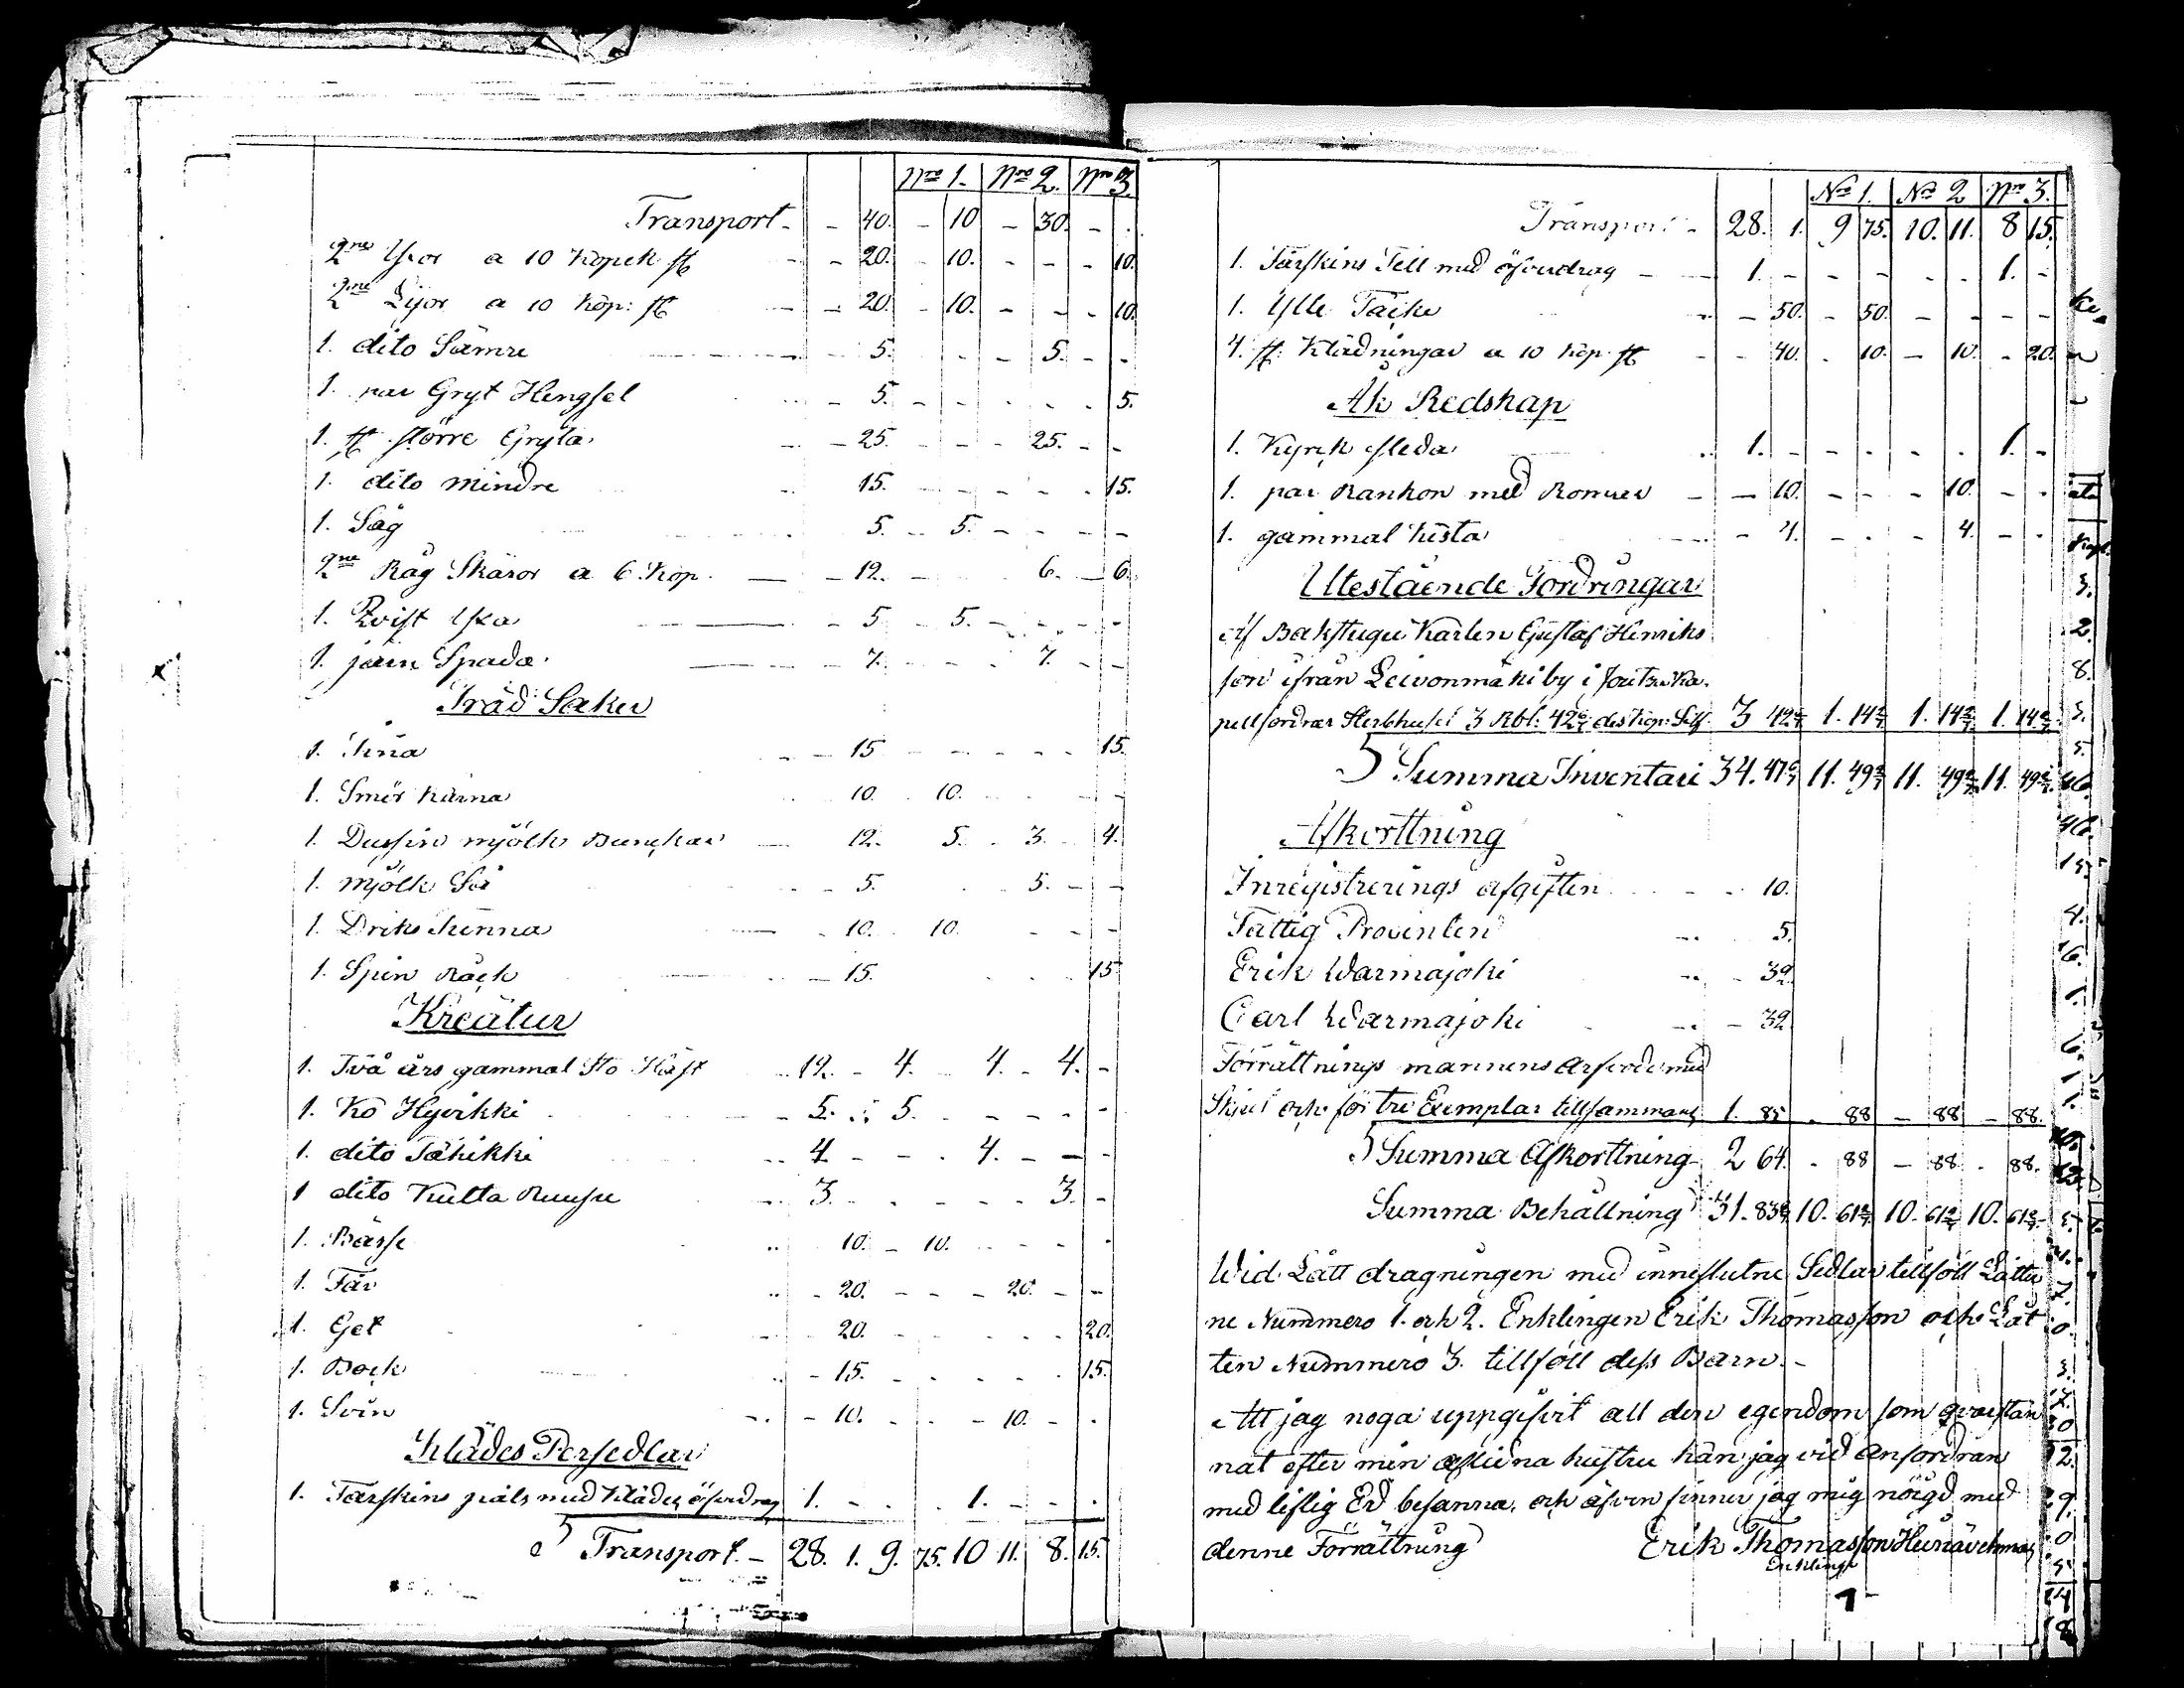 No 1. No 2. No 3.
Transport - - 40. - 10 - 30. - .
2ne Yxor a 10 Kopek st - - 20. - 10. - - - 10.
2ne Lijor a 10 Kop: st - - 20. - 10. - - - 10.
1. dito Sämre - 5. - - 5. - -
1. par Gryt Hengsel - 5. - - - - 5.
1. st större Gryta - 25. - - 25. - -
1. dito mindre 15. - - - - 15.
1. Såg 5. - 5. - - - -
2ne Råg Skäror a 6 Kop. - 12. - 6. - 6.
1. Qvist Yxa - 5. - 5. - - - -
1. järn Spada - 7. - - 7. - -
Träd Saker
1. Tina - - 15 - - - - 15.
1. Smör Kärna 10. 10.
1. Dussin mjölk Bunckar 12. 5. 3. 4.
1. mjölk Så - 5. 5. - -
1. Driks Tunna - 10. 10. - - -
1. Spin Råck - 15. 15
Kreatur
1. Två års gammal Sto Häst 12. - 4. - 4. - 4. -
1. Ko Hyvikki - 5. 5. - - - -
1. dito Tähikki 4 - - - 4. - - -
1 dito Kulta Ruusu 3. - - - - - 3. -
1. Bässe 10. - 10. - - - -
1. Får - 20. - - - 20. - -
1. Get 20. - - - - - 20.
1. Bock - 15. - - - - - 15.
1. Svin - 10. - - - 10. - -
Klädes Persedlar
1. Fårskins päls med Klädes öfverdrag 1. - - - 1. - - -
Transport - 28. 1. 9. 75. 10 11. 8. 15.
No 1. No 2 No 3.
Transport - 28. 1. 9 75. 10. 11. 8 15.
1. Fårskins Fell med öfverdrag - 1. - - - - - 1. -
1. Ylle Täcke - 50. - 50. - - - -
4. st. Klädningar a 10 Kop st - - 40. - 10. - 10. - 20.
Åk Redskap
1. Kyrck släda 1. - - - - - 1. -
1. par Rankon med Romer - - 10. - - - 10. - -
1. gammal Kista - 4. - - - 4. - -
Utestående Fordringar
Af Bakstugu Karlen Gustaf Henriks
son ifrån Leivonmäki by i Joutsa Ka-
pell fordrar Sterbhuset 3 Rbl: 42 6/7 des Kop: Silf. 3 42 6/7 1. 14 2/7 1. 14 2/7 1. 14 2/7
Summa Inventari 34. 47 6/7 11. 49 2/7 11. 49 2/7 11. 49 2/7
Afkorttning
Inregistrerings afgiften - - 10.
Fattig Procenten 5.
Erik Warmajoki - 32.
Carl Warmajoki - 32
Förrättnings mannens Arfvode med
Skjuts och för tre Exemplar tillsammans 1. 85 - 88 - 88 - 88.
Summa Afkorttning 2 64. - 88 - 88 - 88.
Summa Behållning 31. 83 6/7 10. 61 2/7 10. 61 2/7 10. 61 2/7
Wid Lått dragningen med inneslutne Sedlar tillföll Låtter
ne Nummero 1. och 2. Enklingen Erik Thomasson och Låt
ten Nummero 3. tillföll dess Barn. -
Att jag noga uppgifvit all den egendom som qvarstan
nat efter min aflidna hustru kan jag vid anfordran
med liflig Ed besanna, och äfven finner jag mig nöigd med
denne Förrättning Erik Thomasson
Enkling